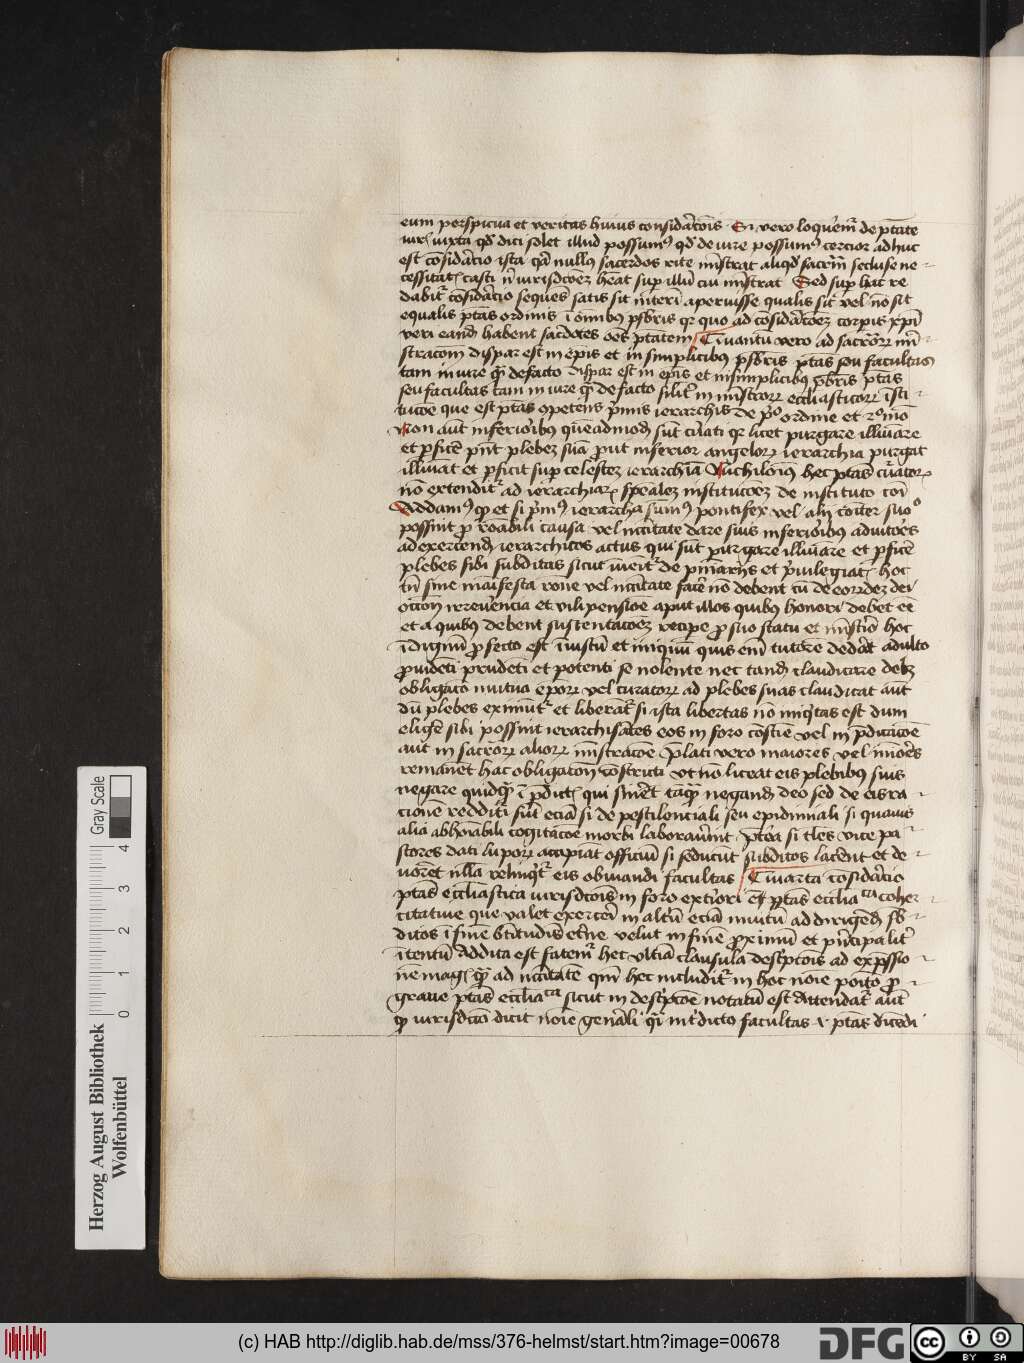 eum perspicua et veritas huius consid'atois Si vero loquem̄ de ptāte
iur' iuxta qd' dici solet illud possum' qd' de iure possum' cercior adhuc
est cōsid'acio ista qr nullus sacerdos rite mīstrat aliqd' sacrm̄ secluse ne
cessitat' casu n' iurisdcōez heat sup illū cui mīstrat Sed sup hac re
dabit' cōsid'acio sequēs satis sit interī aperuisse qualis sit vel nō sit
equalis ptās ordinis ī omībus psbris qr quo ad cōsid'atōez corpis xpi
veri eand' habent sacerdotes oēs ptātem Quantū vero ad sacrōr mī
stracōm dispar est in epis et in simplicibus psbris ptās seu facultas
tam in iure q̄ de facto dispar est in epis et in simplicibus psbris ptās
seu facultas tam in iure q̄ de facto silit' in mīstrorr eccliasticorr īsti
tucōe que est ptās opetens pmis ierarchis de p'o ordine et 2o mō
Non aut inferioribus quēadmod' sūt curati qr licet purgare illuīare
et pficē pnt plebez suā put inferior angelorr ierarchia purgat
illuīat et pficit sup celestez ierarchiā Nichilomī' hec ptās curatorr
nō extendit' ad ierarchiar' spealez institucōez de instituto coī
Addam' q et si pm' ierarcha sum' pontifex vel alij coiter suo
possint p roabili causa vel nccitate dare suis inferioribus adiutōes
ad exercend' ierarchicos actus qui sūt purgare illuīare et pficē
plebes sibi subditas sicut iueit' de p'mariis et priuilegiat' hoc
tn̄ sine maifesta rone vel nccitate facē nō debent cū de eorrdez dei
occōm irreuēncia et vilipensiōe aput illos quibus honori debet eē
et a quibus debent sustentacōez recipe p suo statu et mīstio hoc
īdignū pfecto est īiustū et iniquū quis enī tutorē dedat adulto
puidēti prudēti et potenti se nolente nec tand' claudicare debz
obligatō mutua eporr vel curatorr ad plebes suas claudicat aut
dū plebes eximūt' et liberāt' si ista libertas nō iniqitas est dum
eligē sibi possint ierarchisātes eos in foro cōscīe vel in pdicacōe
aut in sacrōrr aliorr mīstracōe Plati vero maiores vel inioēs
remanēt hac obligatōm cōstricti vt nō liceat eis plebibus suis
negare quidq̄ ī pdict' qui sinēt taq̄ negand' deo sed de eis ra
cionē reddituri sūt eciā si de pestilenciali seu epidimiali si quauis
aliā abhoīabili cogitacōe morbi laborauint Ptea si tles vice pa
stores dati luporr accipiāt officiū si seducūt subditos lacēnt et de
uorēt nlla relinqt' eis obuiandi facultas Quarta cosid'acio
ptās eccliastica iurisdcōis in foro ext'iori est ptās ecclia ca coher
citatiue que valet exerceri in altū eciā inuitū ad dirigend' sb
ditos ī fine btitudis et'ne velut in finē pximū et pncipalit'
ītentū Addita est fatem' hec vltiā clausula descptōis ad expssio
nē mag' q̄ ad nccitatē qm̄ hec includit' in hoc noīe poīto p
graue ptās ecclia ca sicut in descptōe notatū est Attendat' aut
q iurisdcto dicit noīe gen'ali qr int'dicto facultas v ptās dicēdi
Gray Scale
0 1 2 3 4
Herzog August Bibliothek
Wolfenbüttel
(c) HAB http://diglib.hab.de/mss/376-helmst/start.htm?image=00678
DFG
cc BY SA